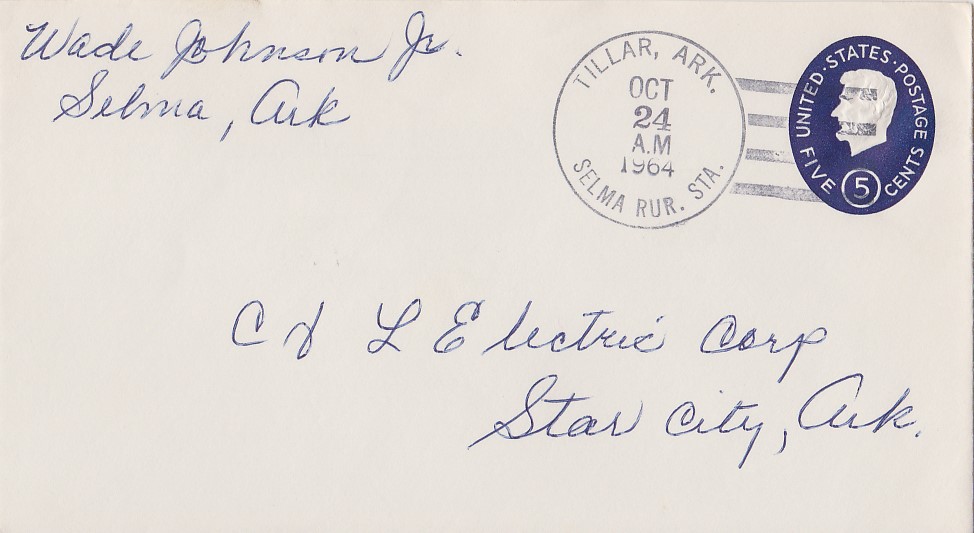 Wade Johnson Jr.
Selma, Ark
TILLAR, ARK.
OCT
24
A.M
1964
SELMA RUR. STA.
UNITED·STATES·POSTAGE
FIVE 5 CENTS
C & L Electric Corp
Star City, Ark.